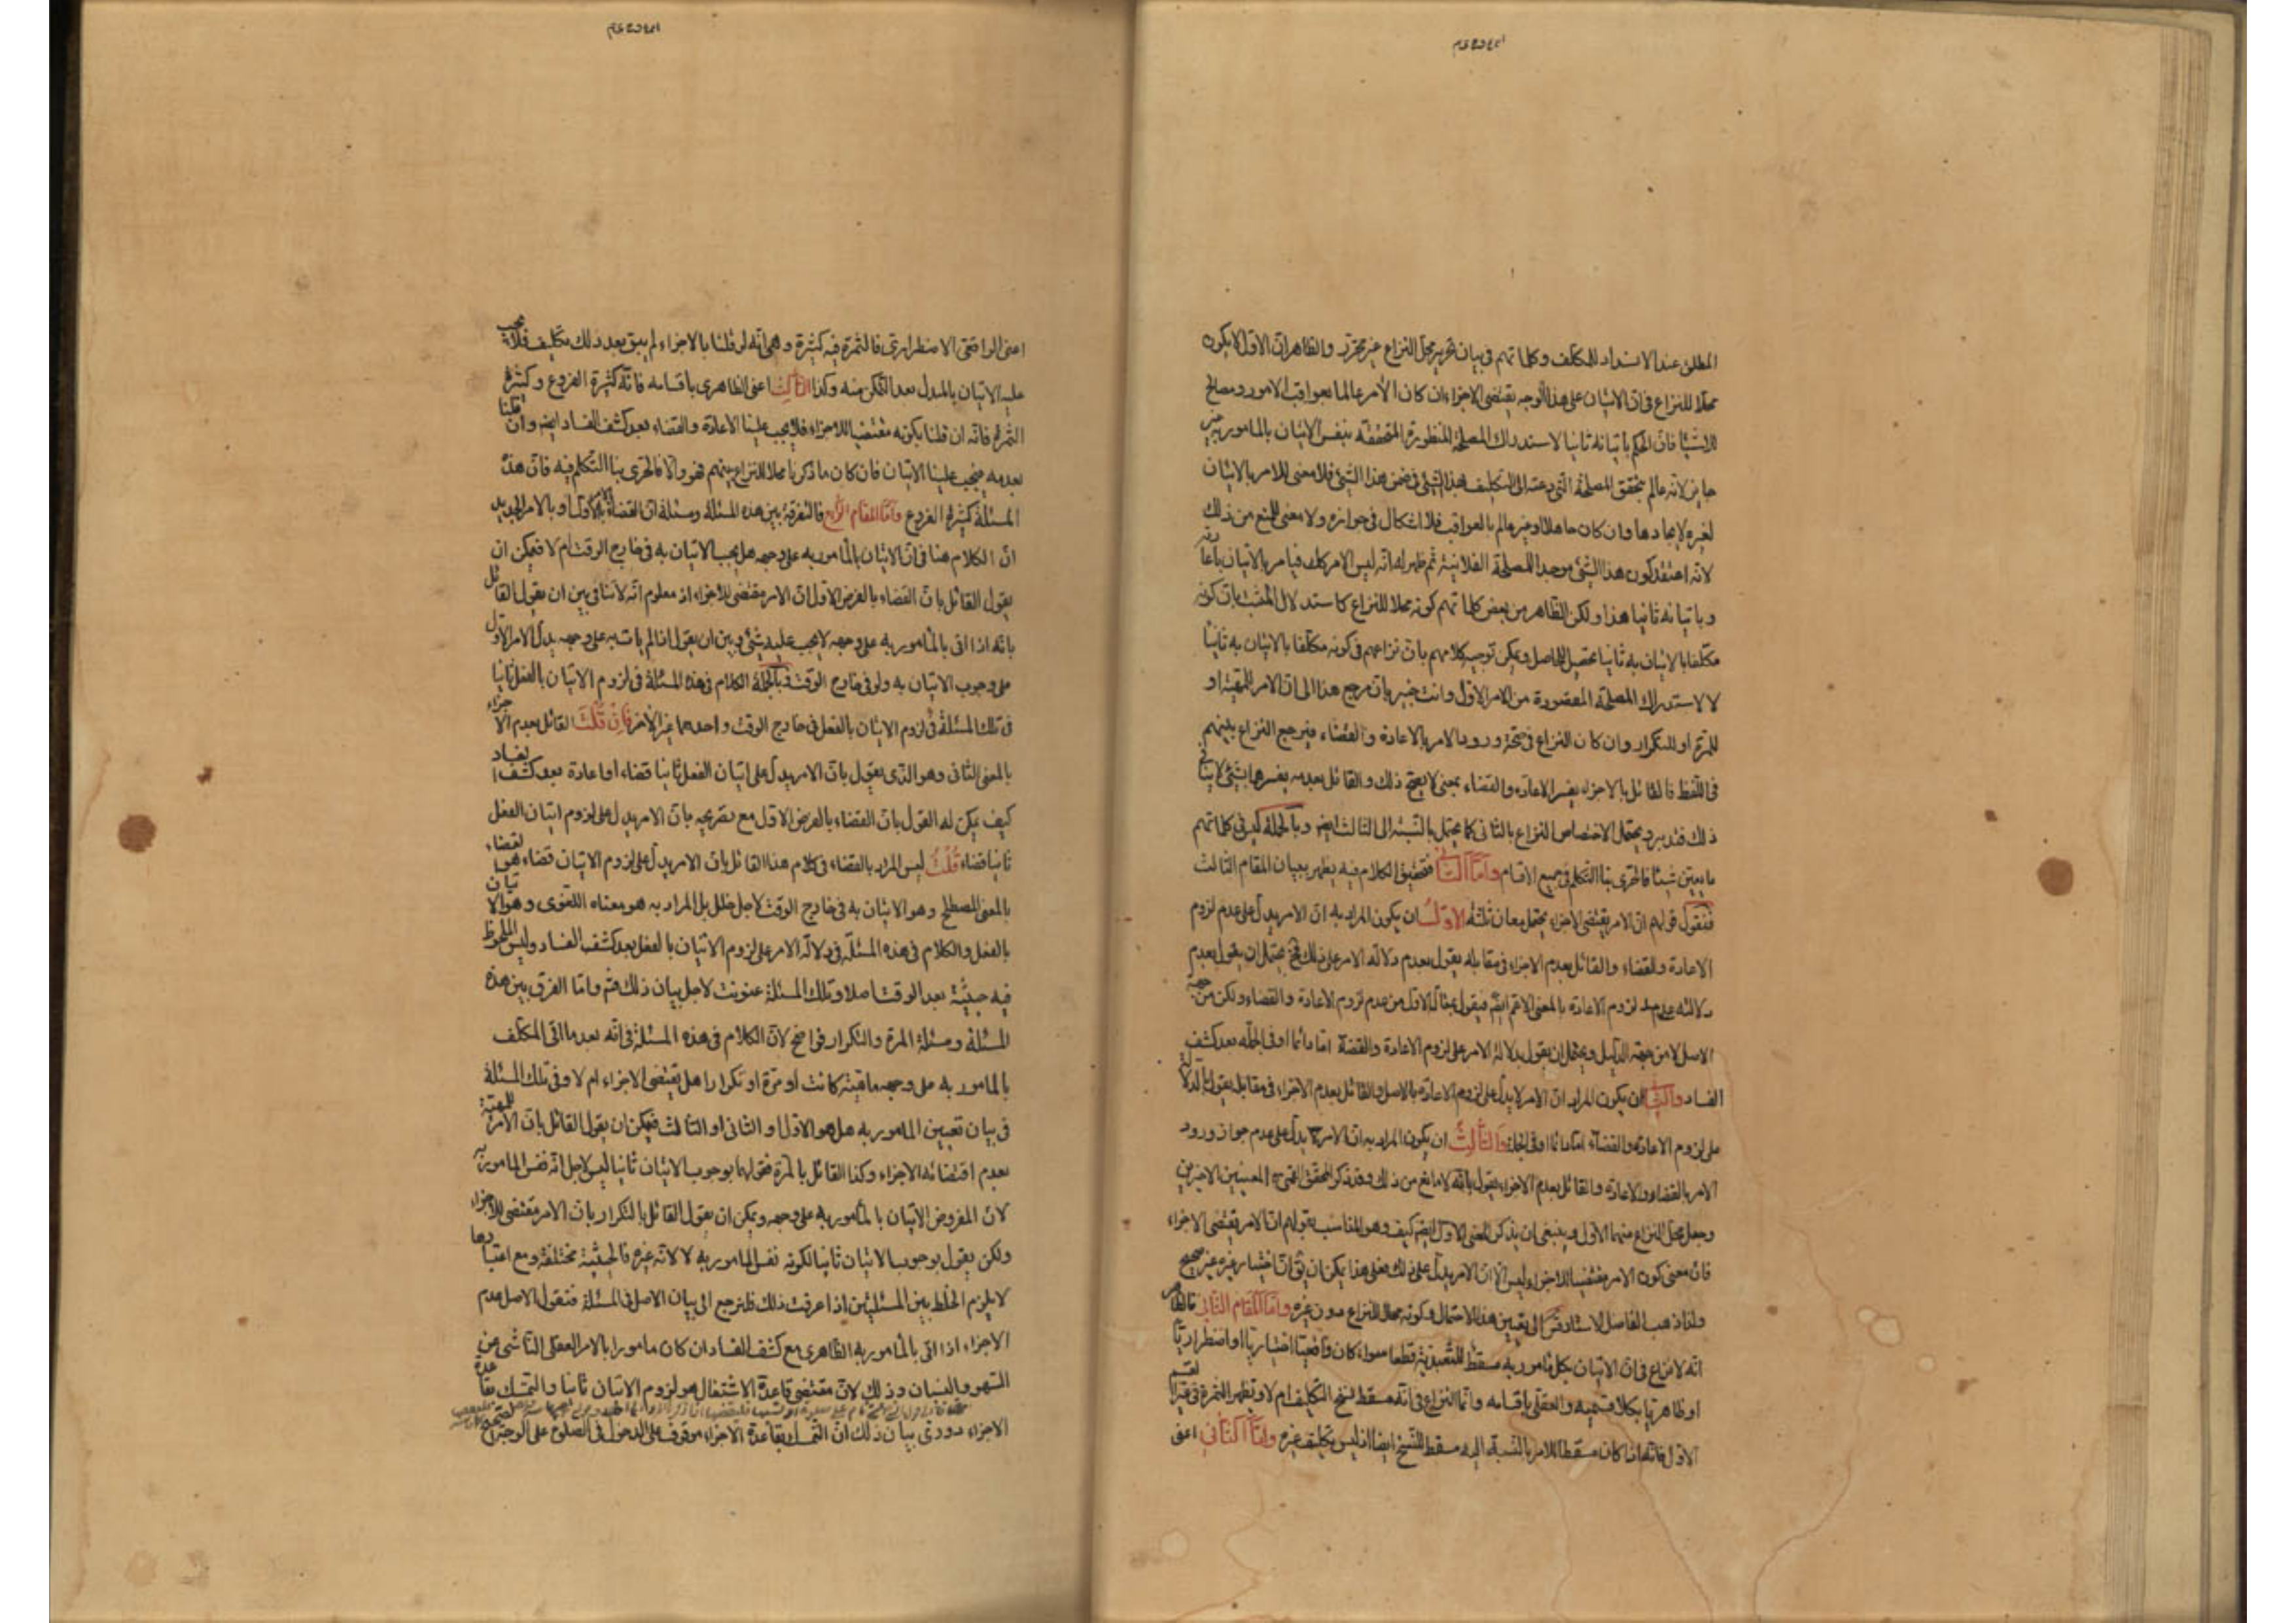 المطلق عند الانسداد للمكلف وكلماتهم فى بيان تحرير محل النزاع غير محرز والظاهر ان الاول لايكون
محلا للنزاع فى ان الاتيان على هذا الوجه يقتضى الاجزاء ان كان الآمر عالما بعواقب الامور ومصالح
الاشياء فان الحكم باتيانه ثانيا لاستدراك المصلحة المنظورة المتحققة بنفس الاتيان بالمامور به غير
جايز لانه عالم بتحقق المصلحة التى دعته الى التكليف بهذا الشئ فى ضمن هذا الشئ فلا معنى للامر بالاتيان
لغيره لايجادها وان كان جاهلا وغير عالم بالعواقب فلا اشكال فى جوازه ولا معنى للمنع من ذلك
لانه اعتقد كون هذا الشئ موجدا للمصلحة الفلانية ثم ظهر له انه ليس الامر كك فيامر بالاتيان
وباتيانه ثانيا هذا ولكن الظاهر من بعض كلماتهم كونه محلا للنزاع كاستدلال المثبت بان كونه
مكلفا بالاتيان به ثانيا تحصيل للحاصل ويمكن توجيه كلامهم بان نزاعهم فى كونه مكلفا بالاتيان به ثانيا
لا لاستدراك المصلحة المقصودة من الامر الاول وانت خبير بان مرجع هذا الى ان الامر للمهية او
للمرة او للتكرار وان كان النزاع فى صحة ورود الامر بالاعادة والقضاء فيرجع النزاع بينهم
فى اللفظ فالقائل بالاجزاء يفسر الاعادة والقضاء بمعنى لا يصح ذلك والقائل بعدمه يفسرها بشئ لا ينافى
ذلك فتدبر ويحتمل الاختصاص النزاع بالثانى كما يحتمل بالنسبة الى الثالث ايضا وبالجملة ليس فى كلماتهم
ما يعين شيئا فالحرى بنا التكلم فى جميع الاقسام واما الثانى فتحقيق الكلام فيه يظهر ببيان المقام الثالث
فنقول قولهم ان الامر يقتضى الاجزاء يحتمل معان ثلثة الاول ان يكون المراد به ان الامر يدل على عدم لزوم
الاعادة والقضاء والقائل بعدم الاجزاء فى مقابله يقول بعدم دلالة الامر على ذلك فح يحتمل ان يقول بعدم
دلالته على عدم لزوم الاعادة بالمعنى الاعم ايضا فيقول بمثال الاول من عدم لزوم الاعادة والقضاء ولكن من جهة
الاصل لا من جهة الدليل ويحتمل ان يقول بدلالة الامر على لزوم الاعادة والقضاء اما دائما او فى الجملة بعد كشف
الفساد والثانى ان يكون المراد ان الامر لا يدل على لزوم الاعادة بالاصل والقائل بعدم الاجزاء فى مقابل يقول بالدلالة
على لزوم الاعادة والقضاء اما دائما او فى الجملة والثالث ان يكون المراد به ان الامر يدل على عدم جواز ورود
الامر بالقضاء والاعادة والقائل بعدم الاجزاء يقول بانه لا مانع من ذلك وقد ذكر المحقق القمى المعنيين الاخيرين
وجعل محل النزاع منهما الاول وينبغى ان يذكر المعنى الاول ايضا كيف وهو المناسب بقولهم ان الامر يقتضى الاجزاء
فان معنى كون الامر مقتضيا للاجزاء ليس الا ان الامر يدل على ذلك فعلى هذا يمكن ان يق ان اختيار غيره غير صحيح
ولذا ذهب الفاضل الاستاد الى تعيين هذا الاحتمال وكونه محلا للنزاع دون غيره واما المقام الثانى فالظاهر
انه لا نزاع فى ان الاتيان بكل مامور به مسقط للتعبد به قطعا سواء كان واقعيا اختياريا او اضطراريا
او ظاهريا بكلا قسميه والعقلى باقسامه وانما النزاع فى انه مسقط لنسخ التكليف ام لا وتظهر الثمرة فى غير القسم
الاول فانه اذا كان مسقطا للامر بالنسبة اليه مسقط للنسخ ايضا اذ ليس تكليف غيره واما الثانى اعنى
اعنى الواقعى الاضطرارى فالثمرة فيه كثيرة وهى انه لو قلنا بالاجزاء لم يبق بعد ذلك تكليف فلا يجب
عليه الاتيان بالمبدل بعد التمكن منه وكذا الثالث اعنى الظاهرى باقسامه فانه كثيرة الفروع وكثيرة
الثمرة فانه ان قلنا بكونه مقتضيا للاجزاء فلا يجب علينا الاعادة والقضاء بعد كشف الفساد ايضا وان قلنا
بعدمه فيجب علينا الاتيان فان كان ما ذكرنا محلا للنزاع بينهم فهو والا فالحرى بنا التكلم فيه فان هذه
المسئلة كثيرة الفروع واما المقام الرابع فالتفرقة بين هذه المسئلة ومسئلة ان القضاء بالامر الاول او بالامر الجديد
ان الكلام هنا فى ان الاتيان بالمأمور به على وجهه هل يجب الاتيان به فى خارج الوقت ام لا فيمكن ان
يقول القائل بان القضاء بالفرض الاول ان الامر مقتضى للاجزاء اذ معلوم انه لا تنافى بين ان يقول القائل
بانه اذا اتى بالمأمور به على وجهه لا يجب عليه شئ وبين ان يقول اذا لم يات به على وجهه يدل الامر الاول
على وجوب الاتيان به ولو فى خارج الوقت وبالجملة الكلام فى هذه المسئلة فى لزوم الاتيان بالفعل ثانيا
فى تلك المسئلة فى لزوم الاتيان بالفعل فى خارج الوقت واحدهما غير الاخر فان قلت القائل بعدم الاجزاء
بالمعنى الثانى وهو الذى يقول بان الامر يدل على اتيان الفعل ثانيا قضاء او اعادة بعد كشف الفساد
كيف يمكن له القول بان القضاء بالفرض الاول مع تصريحه بان الامر يدل على لزوم اتيان الفعل
ثانيا قضاء قلت ليس المراد بالقضاء فى كلام هذا القائل بان الامر يدل على لزوم الاتيان قضاء هو القضاء
بالمعنى المصطلح وهو الاتيان به فى خارج الوقت لاجل خلل بل المراد به هو معناه اللغوى وهو الاتيان
بالفعل والكلام فى هذه المسئلة فى دلالة الامر على لزوم الاتيان بالفعل بعد كشف الفساد وليس الملحوظ
فيه حيثية بعد الوقت اصلا وتلك المسئلة عنونت لاجل بيان ذلك فتم واما الفرق بين هذه
المسئلة ومسئلة المرة والتكرار فواضح لان الكلام فى هذه المسئلة فى انه بعد ما اتى المكلف
بالمامور به على وجهه ماهية كانت او مرة او تكرارا هل يقتضى الاجزاء ام لا وفى تلك المسئلة
فى بيان تعيين المامور به هل هو الاول او الثانى او الثالث فيمكن ان يقول القائل بان الامر للمهية
بعدم اقتضائه الاجزاء وكذا القائل بالمرة فقولهما بوجوب الاتيان ثانيا ليس لاجل انه نفس المامور به
لان المفروض الاتيان بالمأمور به على وجهه ويمكن ان يقول القائل بالتكرار بان الامر مقتضى للاجزاء
ولكن يقول بوجوب الاتيان ثانيا لكونه نفس المامور به لا لانه غيره فالحيثية مختلفة ومع اعتبارها
لا يلزم الخلط بين المسئلتين اذا عرفت ذلك فلنرجع الى بيان الاصل فى المسئلة فنقول الاصل عدم
الاجزاء اذا اتى بالمأمور به الظاهرى مع كشف الفساد ان كان مامورا بالامر العقلى الناشى من
السهو والنسيان وذلك لان مقتضى قاعدة الاشتغال هو لزوم الاتيان ثانيا والتمسك بقاعدة
الاجزاء دورى بيان ذلك ان التمسك بقاعدة الاجزاء موقوف على الدخول فى الصلوة على الوجه الصحيح